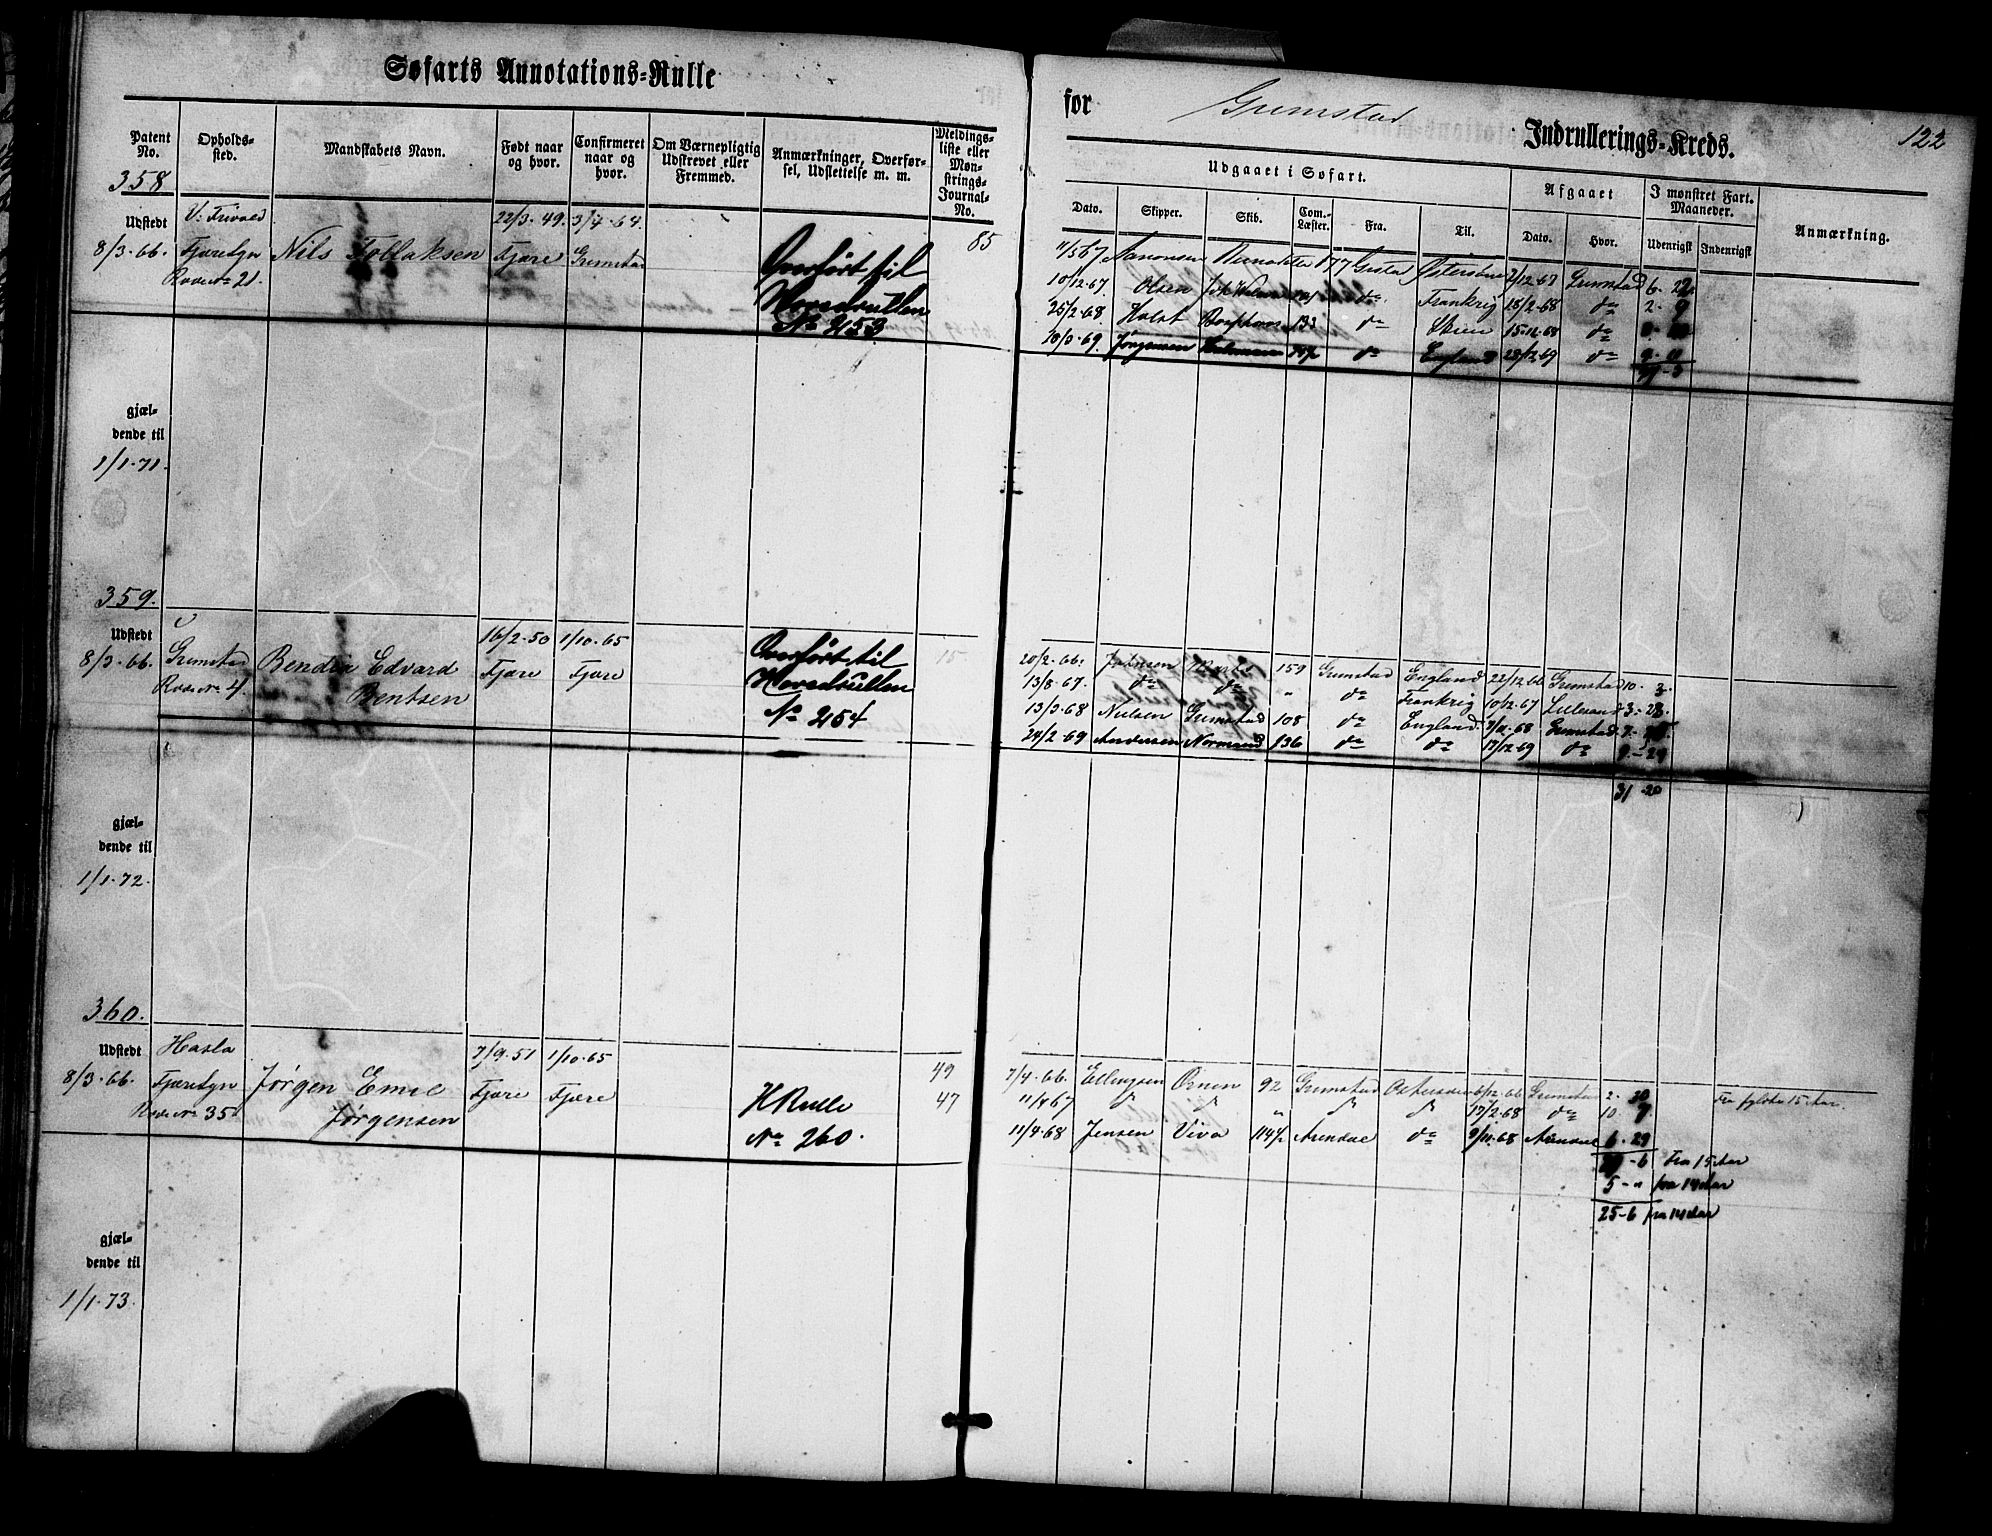 Søfarts Annotations-Rulle
for Grimstad Indrullerings-Kreds.
122
Patent No.
Opholds-sted.
Mandskabets Navn.
Født naar og hvor.
Confirmeret naar og hvor.
Om Værnepligtig Udskrevet eller Fremmed.
Anmærkninger, Overførsel, Udslettelse m. m.
Meldingsliste eller Mønstrings-Journal-No.
Udgaaet i Søfart.
Afgaaet
I mønstret Fart. Maaneder.
Anmærkning.
Dato. Skipper. Skib. Com.-Læster. Fra. Til. Dato. Hvor. Udenrigsk Indenrigsk
358
Udstedt
8/3.66.
Fjæresgn
Rode No 21.
Nils Tollaksen
22/3.49.
Fjære
3/7.64.
Grimstad
Overført til
Hovedrullen
No 253
85
Aanonsen 177 2/12.67 Grimstad 6. 22
10/12.67. Olsen do Frankrig 28/2.68 do 2. 9
25/2.68. Holst do Skien 15.12.68 do
10/3.69. Jørgensen do England 28/12.69 do 9. 11
gjæl-
dende til
1/1.71.
359.
Udstedt
8/3.66.
Grimstad
Rode No 4.
Bendix Edvard
Bentsen
16/2.50
Fjære
1/10.65
Fjære
Overført til
Hovedrullen
No 254
15
20/2.66. 159 Grimstad England 22/12.66 Grimstad 10. 3.
13/8.67. do do " do Frankrig 10/12.67 Lillesand 3. 28.
13/3.68 Nielsen Grimstad 108 do England Grimstad
24/2.69 Andersen Normand 136 do do 17/12.69 do 9. - 24
31. 20
gjæl-
dende til
1/1.72.
360.
Udstedt
8/3.66.
Hasla
Fjæresgn
Rode No 35
Jørgen Emil
Jørgensen
7/9.51
Fjære
1/10.65
Fjære
H Rulle
No 260.
49
47
7/4.66. Ellingsen Ørnen 92 Grimstad 6/12.66 Grimstad 2. 20 Fra fyldte 15 Aar.
11/4.67 " 17/2.68 do 10. 7
11/4.68 Jensen Viva 114½ Arendal do 9/11.68 Arendal 6. 29
- 6 Fra 15 Aar
5 - " fra 14 Aar
25-6 fra 14 Aar
gjæl-
dende til
1/1.73.